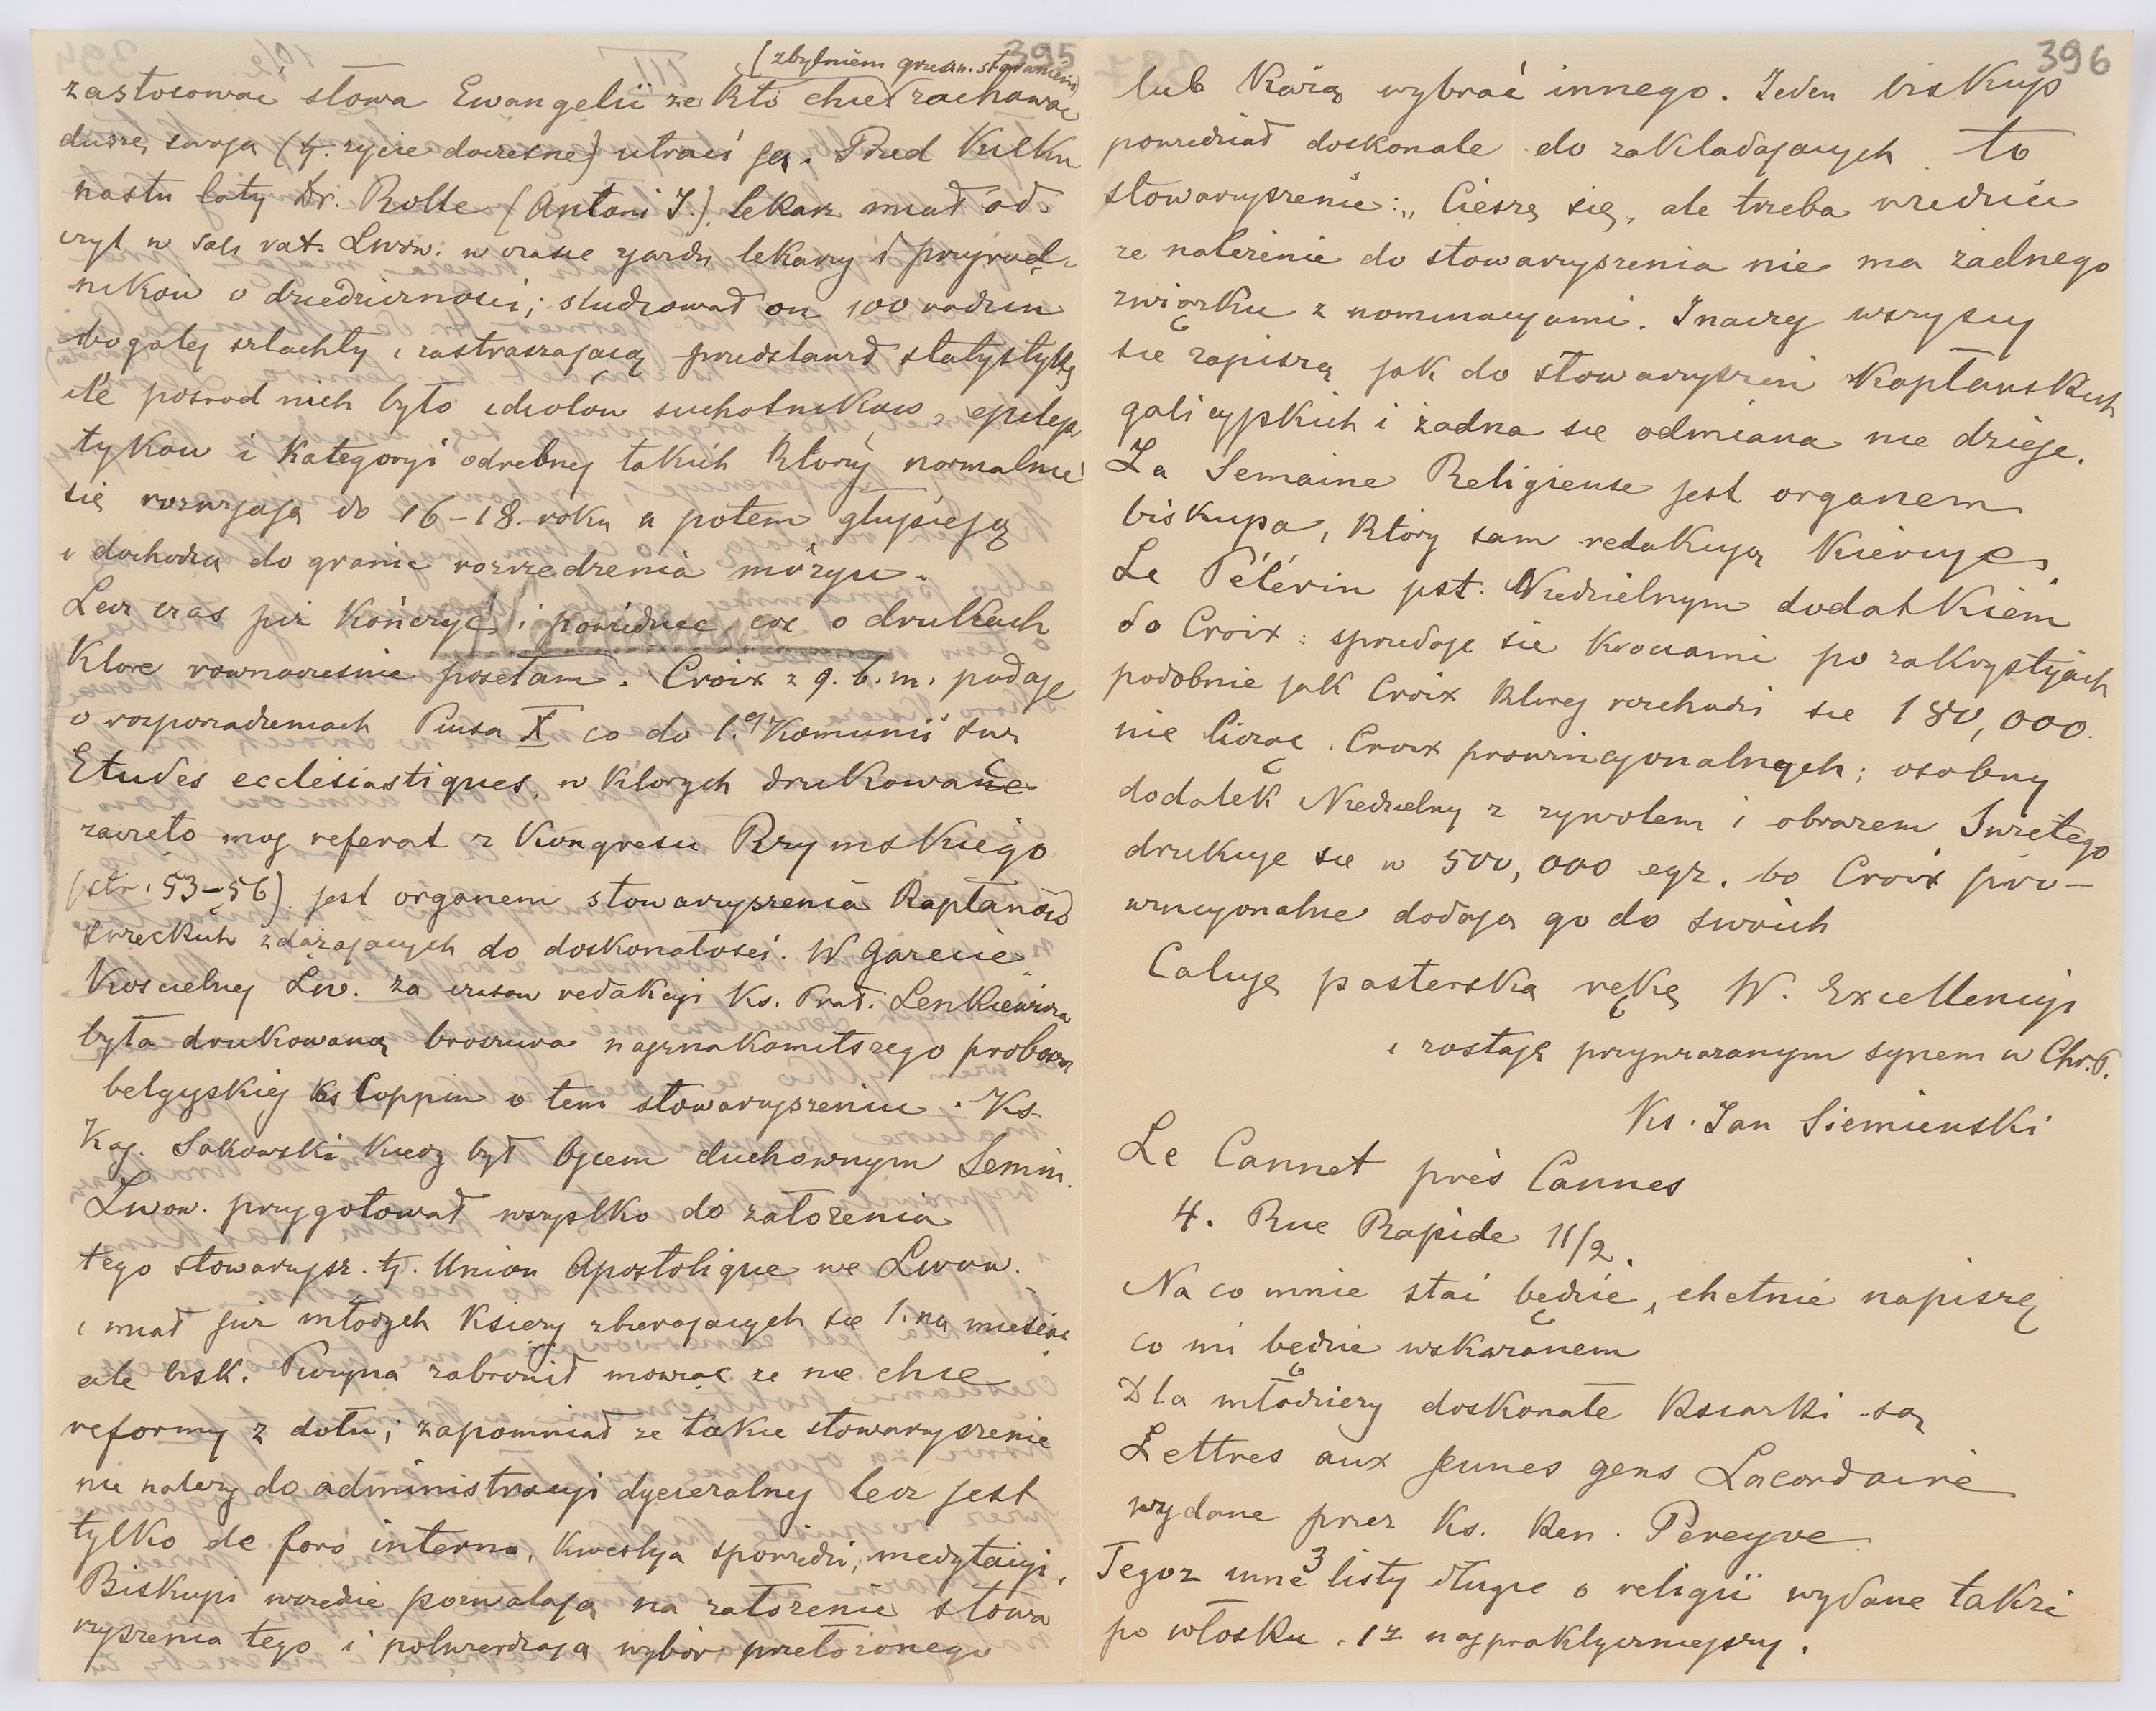 395
(zbytniem gruszn. staraniem)
zastosować słowa Ewangelii ze kto chce zachować
duszę swoją (tj. zycie doczesne) utraci ją. Przed kilku
nastu laty Dr. Rolle (Antoni J.) lekarz miał od-
czyt w sali rat. Lwow. w czasie zjazdu lekarzy i przyrod-
ników o dziedziczności; studiował on 100 rodzin
bogatej szlachty i zastraszającą przedstawił statystykę
ile pośrod nich było idiotów suchotników, epilep
tyków i kategoryi odrebnej takich ktorzy normalnie
się rozwijają do 16-18. roku a potem głupieją
i dochodzą do granic rozrzedzenia mózgu.
Lecz czas już kończyć i powiedzieć coś o drukach
ktore rownoczesnie posełam. Croix z 9. b. m. podaje
o rozporządzeniach Piusa X co do 1.ej Komunii św.
Etudes ecclésiastiques, w ktorych drukowane
zaczęto moj referat z Kongresu Rzymskiego
(str. 53-56) jest organem stowarzyszenia kapłanów
świeckich zdążających do doskonałości. W Gazecie
Koscielnej Lw. za czasow redakcyi Ks. Prał. Lenkiewicza
była drukowaną broszura najznakomitszego proboszcz
belgyjskiej ks Coppin o tem stowarzyszeniu. Ks
Kaj. Sakowski kiedy był ojcem duchownym Semin.
Lwow. przygotował wszystko do założenia
tego stowarzysz. tj. Union Apostolique we Lwow.
i miał już młodych księży zbierających się 1. na miesiąc
ale bisk. Puzyna zabronił mowiąc ze nie chce
reformy z dołu; zapomniał ze takie stowarzyszenie
nie należy do administracyi dyecezalnej lecz jest
tylko de foro interno, kwestya spowiedzi, medytacyi.
Biskupi wszedzie pozwalają na założenie stowa
rzyszenia tego i potwierdzają wybór przełożonego
396
lub każą wybrać innego. Jeden biskup
powiedział doskonale do zakładających to
stowarzyszenie: „Cieszę się, ale trzeba wiedzieć
ze należenie do stowarzyszenia nie ma żadnego
związku z nominacyami. Inaczej wszyscy
się zapiszą jak do stowarzyszeń kapłanskich
galicyjskich i żadna się odmiana nie dzieje.
La Semaine Religieuse jest organem
biskupa, ktory sam redakcyą kieruje
Le Pélérin jest Niedzielnym dodatkiem
do Croix: sprzedaje się krociami po zakrystyjach
podobnie jak Croix ktorej rozchodzi się 180,000.
nie licząc Croix prowincyonalnych; osobny
dodatek Niedzielny z żywotem i obrazem Swiętego
drukuje się w 500,000 egz. bo Croix pro-
wincyonalne dodają go do swoich
Całuję pasterską rękę W. Excellencyi
i zostaję przywiązanym synem w Chr. P.
Ks. Jan Siemienski
Le Cannet près Cannes
4. Rue Rapide 11/2.
Na co mnie stać będzie, chętnie napiszę
co mi będzie wskazanem
Dla młodzieży doskonałe książki są
Lettres aux jeunes gens Lacordaire
wydane przez Ks. Hen. Pereyve
Tegoz inne 3 listy długie o religii wydane także
po włosku. 1z najpraktyczniejszy.